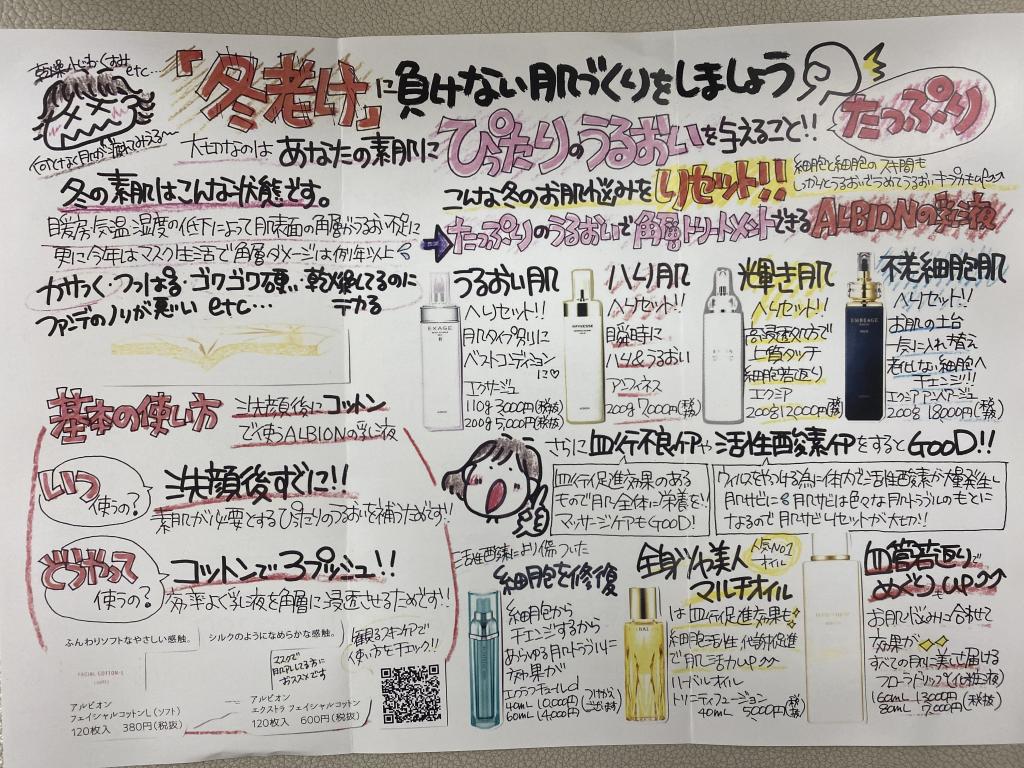 乾燥 小じわ くすみ
etc…
「冬老け」に負けない肌づくりをしましょう
何となく肌が疲れてみえる〜
大切なのは あなたの素肌に ぴったりのうるおいを与えること!!
たっぷり
冬の素肌はこんな状態です。
暖房、気温、湿度の低下によって肌表面の角層がうるおい不足に
更に今年はマスク生活で角層ダメージは例年以上
カサつく・つっぱる・ゴワゴワ硬い・乾燥してるのにテカる
ファンデのノリが悪い etc…
こんな冬のお肌悩みをリセット!!
細胞と細胞のスキ間も
しっかりとうるおいでつめてうるおいキープ力もUP
たっぷりのうるおいで角層トリートメントできるALBIONの乳液
うるおい肌
へリセット!!
肌タイプ別に
ベストコンディション
に♡
エクサージュ
110g 3000円(税抜)
200g 5,000円(税抜)
EXAGE
ハリ肌
へリセット!!
瞬時に
ハリ&うるおい
アンフィネス
200g 7000円(税抜)
INFINESSE
輝き肌
へリセット!!
高浸透処方で
上質タッチ
細胞若返り
エクシア
200g 12000円(税抜)
不老細胞肌
へリセット!!
お肌の土台
一気に入れ替え
老化しない細胞へ
チェンジ!!
エクシア アンベアージュ
200g 18000円(税抜)
EMBEAGE
基本の使い方
洗顔後にコットン
で使うALBIONの乳液
いつ
使うの?
洗顔後すぐに!!
素肌が必要とするぴったりのうるおいを補うためです!!
どうやって
使うの?
コットンで3プッシュ!!
効率よく乳液を角層に浸透させるためです!!
ふんわりソフトなやさしい感触。
シルクのようになめらかな感触。
FACIAL COTTON-L
マスクで
肌アレしてる方に
おススメです
観るスキンケアで
使い方をチェック!!
アルビオン
フェイシャルコットンL(ソフト)
120枚入 380円(税抜)
アルビオン
エクストラ フェイシャルコットン
120枚入 600円(税抜)
さらに 血行不良ケアや活性酸素ケアをするとGooD!!
血行促進効果のある
もので肌全体に栄養を!!
マッサージケアもGooD!
ウィルスをやつける為に体内で活性酸素が大量発生し
肌サビに 肌サビは色々な肌トラブルのもとに
なるので肌サビリセットが大切!!
活性酸素により傷ついた
細胞を修復
細胞から
チェンジするから
あらゆる肌トラブルに
効果が
エクラフチュールd
40ml 10,000円
60ml 14000円
(つけかえございます)
全身ツヤ美人
マルチオイル
人気NO1
オイル
は血行促進効果も
細胞活性、代謝促進
で肌活力UP
ハーバルオイル
トリニティフュージョン
40ml 5000円(税抜)
血管若返りで
めぐりUP
お肌悩みに合わせて
効果が
すべての肌に美を届ける
フローラドリップ(化粧液)
160ml 13000円(税抜)
80ml 7,000円(税抜)